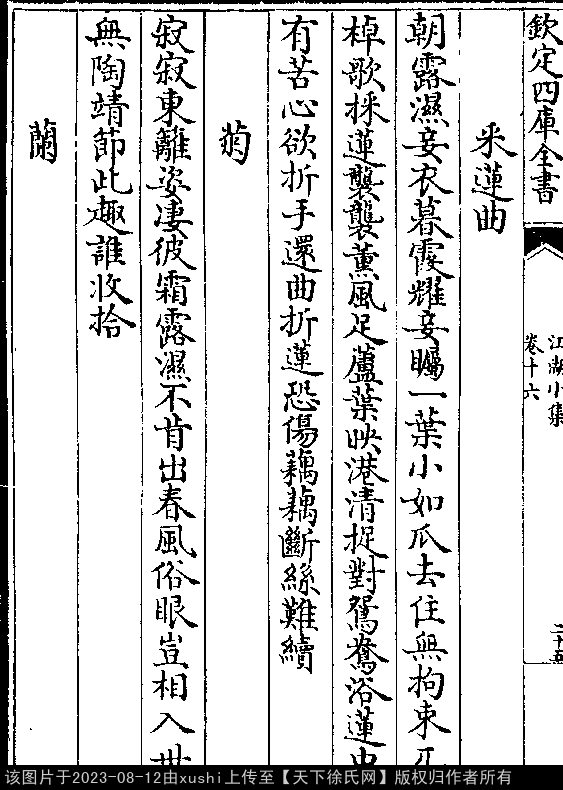 欽定四庫全書
江湖小集
卷十六
二十五
采蓮曲
朝露濕妾衣暮霞耀妾矚一葉小如瓜去住無拘束
棹歌採蓮襲襲薰風足蘆葉映港清捉對鴛鴦浴蓮
有苦心欲折手還曲折蓮恐傷藕藕斷絲難續
菊
寂寂東籬姿凄彼霜露濕不肯出春風俗眼豈相入
無陶靖節此趣誰收拾
蘭
该图片于2023-08-12由xushi上传至【天下徐氏网】版权归作者所有